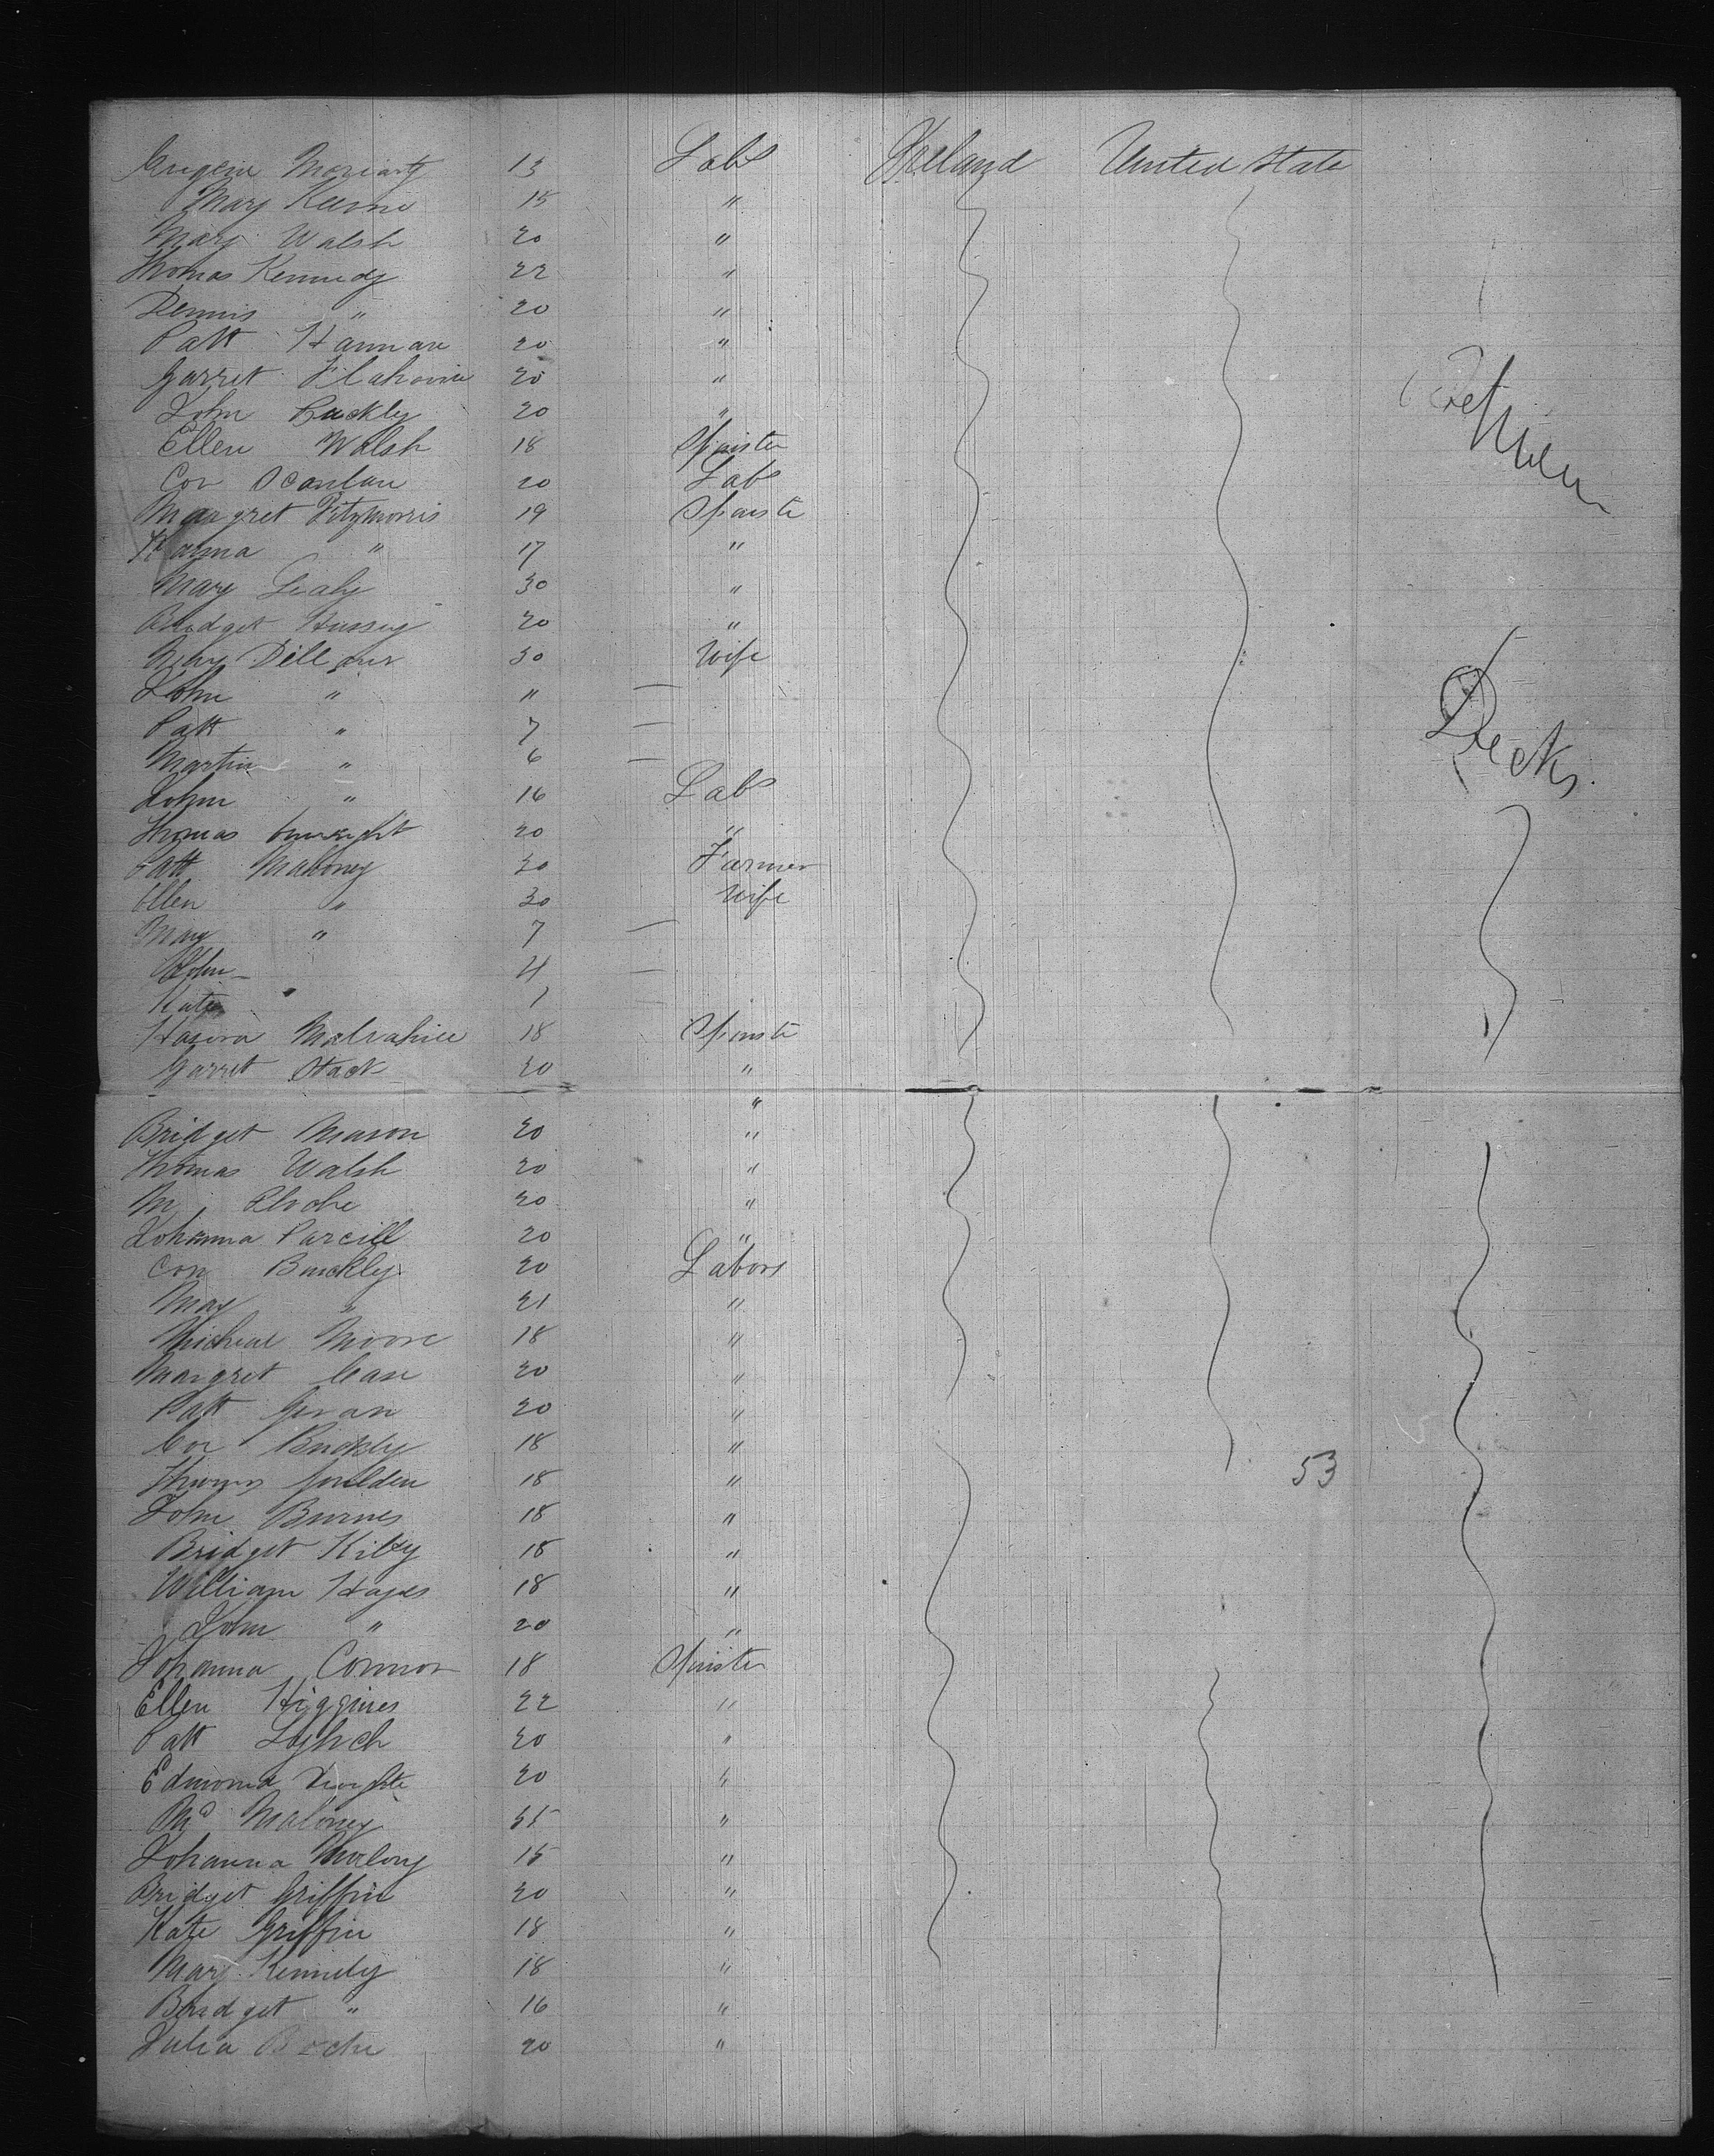 Eugene Moriarty 13 Labs Ireland United State
Mary Keene 15 "
Mary Walsh 20 "
Thomas Kennedy 22 "
Dennis " 20 "
Patt Hannan 20 "
Garret Flahavin 20 "
John Buckly 20 "
Ellen Walsh 18 Spinster
Con Scanlan 20 Labs
Margret Fitzmorris 19 Spinste
Hanna " 17 "
Mary Lealy 30 "
Bridget Hussey 20 "
Dillane 30 Wife
John " "
Patt " 7
Martin " 6
John " 16 Labs
Thomas 20 "
Between
Decks
Patt Mahoney 30 Farmer
Ellen " 30 Wife
Mary " 7
John 4
Kate 1
Hanora 18 Spinste
Garret Stack 20 "
"
Bridget Mason 20 "
Thomas Walsh 20 "
M 20 "
Johanna Parcill 20 "
Con Buckly 20 Labors
May " 21 "
Micheal Moore 18 "
Margret Case 20 "
Patt 20 "
Con Buckly 18 "
Thomas 18 " 53
John Burnes 18 "
Bridget Kilty 18 "
William Hayes 18 "
John " 20 "
Johanna Connor 18 Spinster
Ellen Higgines 22 "
Patt Lynch 20 "
Edmond 20 "
Md Maloney "
Johanna Malony 15 "
Bridget Griffin 20 "
Kate Griffin 18 "
Mary Kennedy 18 "
Bridget " 16 "
Julia Roche 20 "